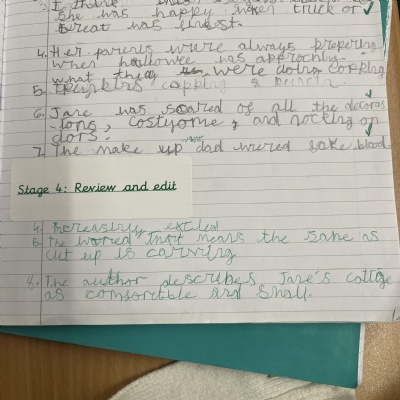 2. I think this
She was happy when truck or
treat was finest.
4. Her parents were always prepering
when hallowee was approching.
what they were doing copping
5. copping
6. Jane was scared of all the decoras
-ions, costyome, and nocking on
dors.
7. The make up dad wured fake blood.
Stage 4: Review and edit
4. increasinly
5. the wored that means the same as
cut up is carving
8. the author describes Jane's cottage
as comfortible and small.